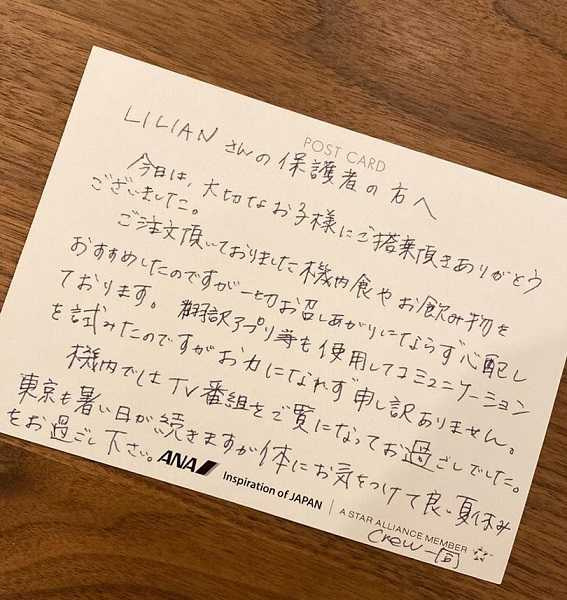 POST CARD
LILIANさんの保護者の方へ
今日は、大切なお子様にご搭乗頂きありがとう
ございました。
ご注文頂いておりました機内食やお飲み物を
おすすめしたのですが一切お召しあがりにならず心配し
ております。翻訳アプリ等も使用してコミュニケーション
を試みたのですがお力になれず申し訳ありません。
機内でしは TV番組をご覧になってお過ごしでした。
東京も暑い日が続きますが体にお気をつけて良い夏休み
をお過ごし下さい。
ANA Inspiration of JAPAN | A STAR ALLIANCE MEMBER
crew一同